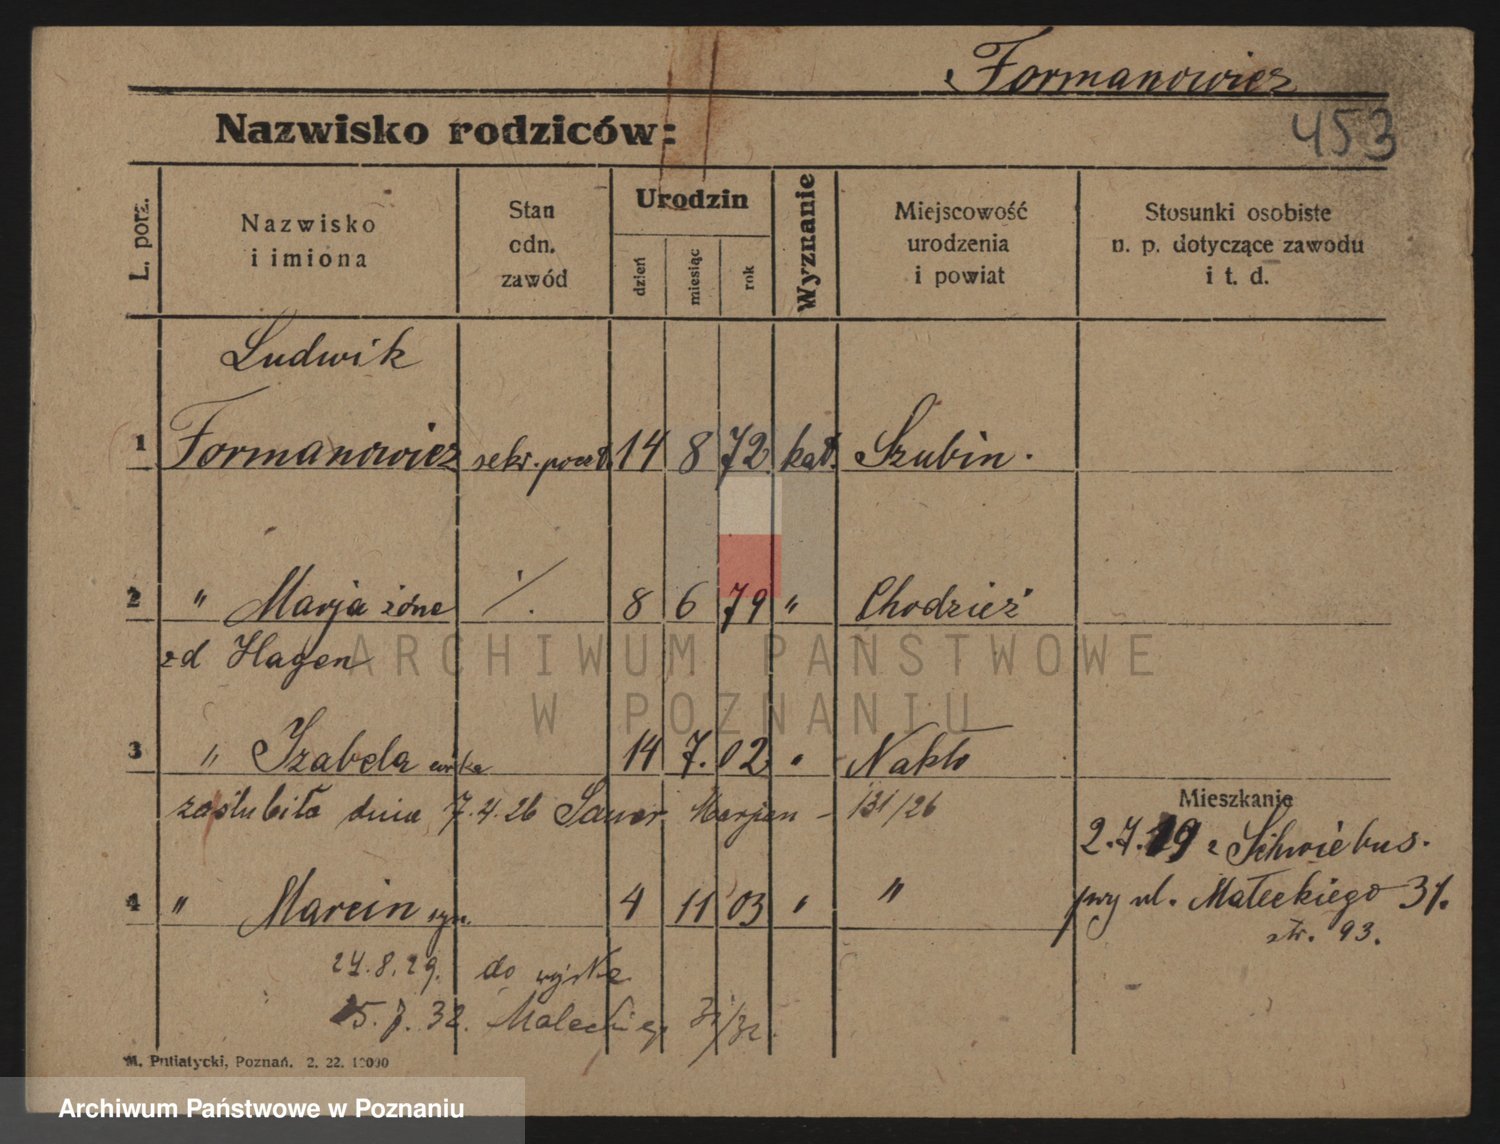 Formanowicz
453
Nazwisko rodziców:
L. porz.
Nazwisko
i imiona
Stan
odn.
zawód
Urodzin
dzień
miesiąc
rok
Wyznanie
Miejscowość
urodzenia
i powiat
Stosunki osobiste
n. p. dotyczące zawodu
i t. d.
Ludwik
1 Formanowicz sekr. poczt. 14 8 72 kat. Szubin.
2 " Marja żona ./. 8 6 79 " Chodzież
zd Hagen
3 " Izabela córka 14 7. 02 " Nakło
zaślubiła dnia 7.4.26 Marjan - 131/26
Mieszkanie
2.7.19 z Schwiebus.
przy ul. Małeckiego 31.
str. 93.
4 " Marcin syn. 4 11 03 " "
24.8.29. do wojska
15.7.32. Małeckiego
M. Putiatycki, Poznań. 2. 22. 10000
ARCHIWUM PAŃSTWOWE
W POZNANIU
Archiwum Państwowe w Poznaniu